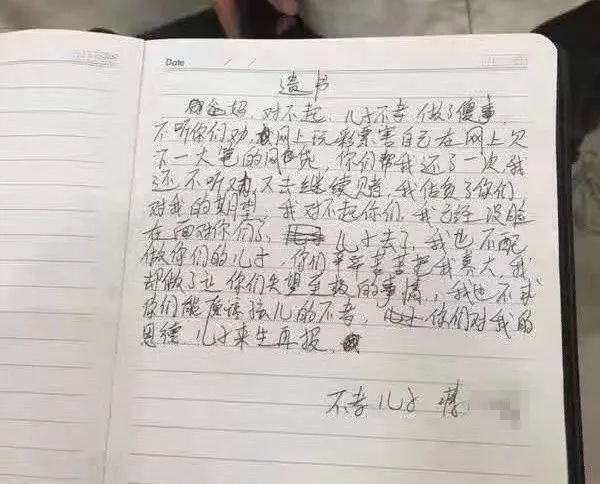 Date / /
遗书
爸妈，对不起，儿子不孝，做了傻事，
不听你们劝，网上玩彩票害自己在网上欠
下一大笔的网贷，你们帮我还了一次，我
还不听劝，又去继续赌，我负了你们
对我的期望，我对不起你们，我没脸
在面对你们了，儿子去了，我也不配
做你们的儿子，你们辛辛苦苦把我养大，我
却做了让你们失望至极的事情，我也不求
你们能原谅孩儿的不孝，你们对我的
恩德，儿子来生再报，
不孝儿子